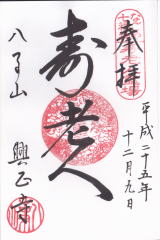 奉拝
平成二十五年
十二月九日
寿老人
八事山
興正寺